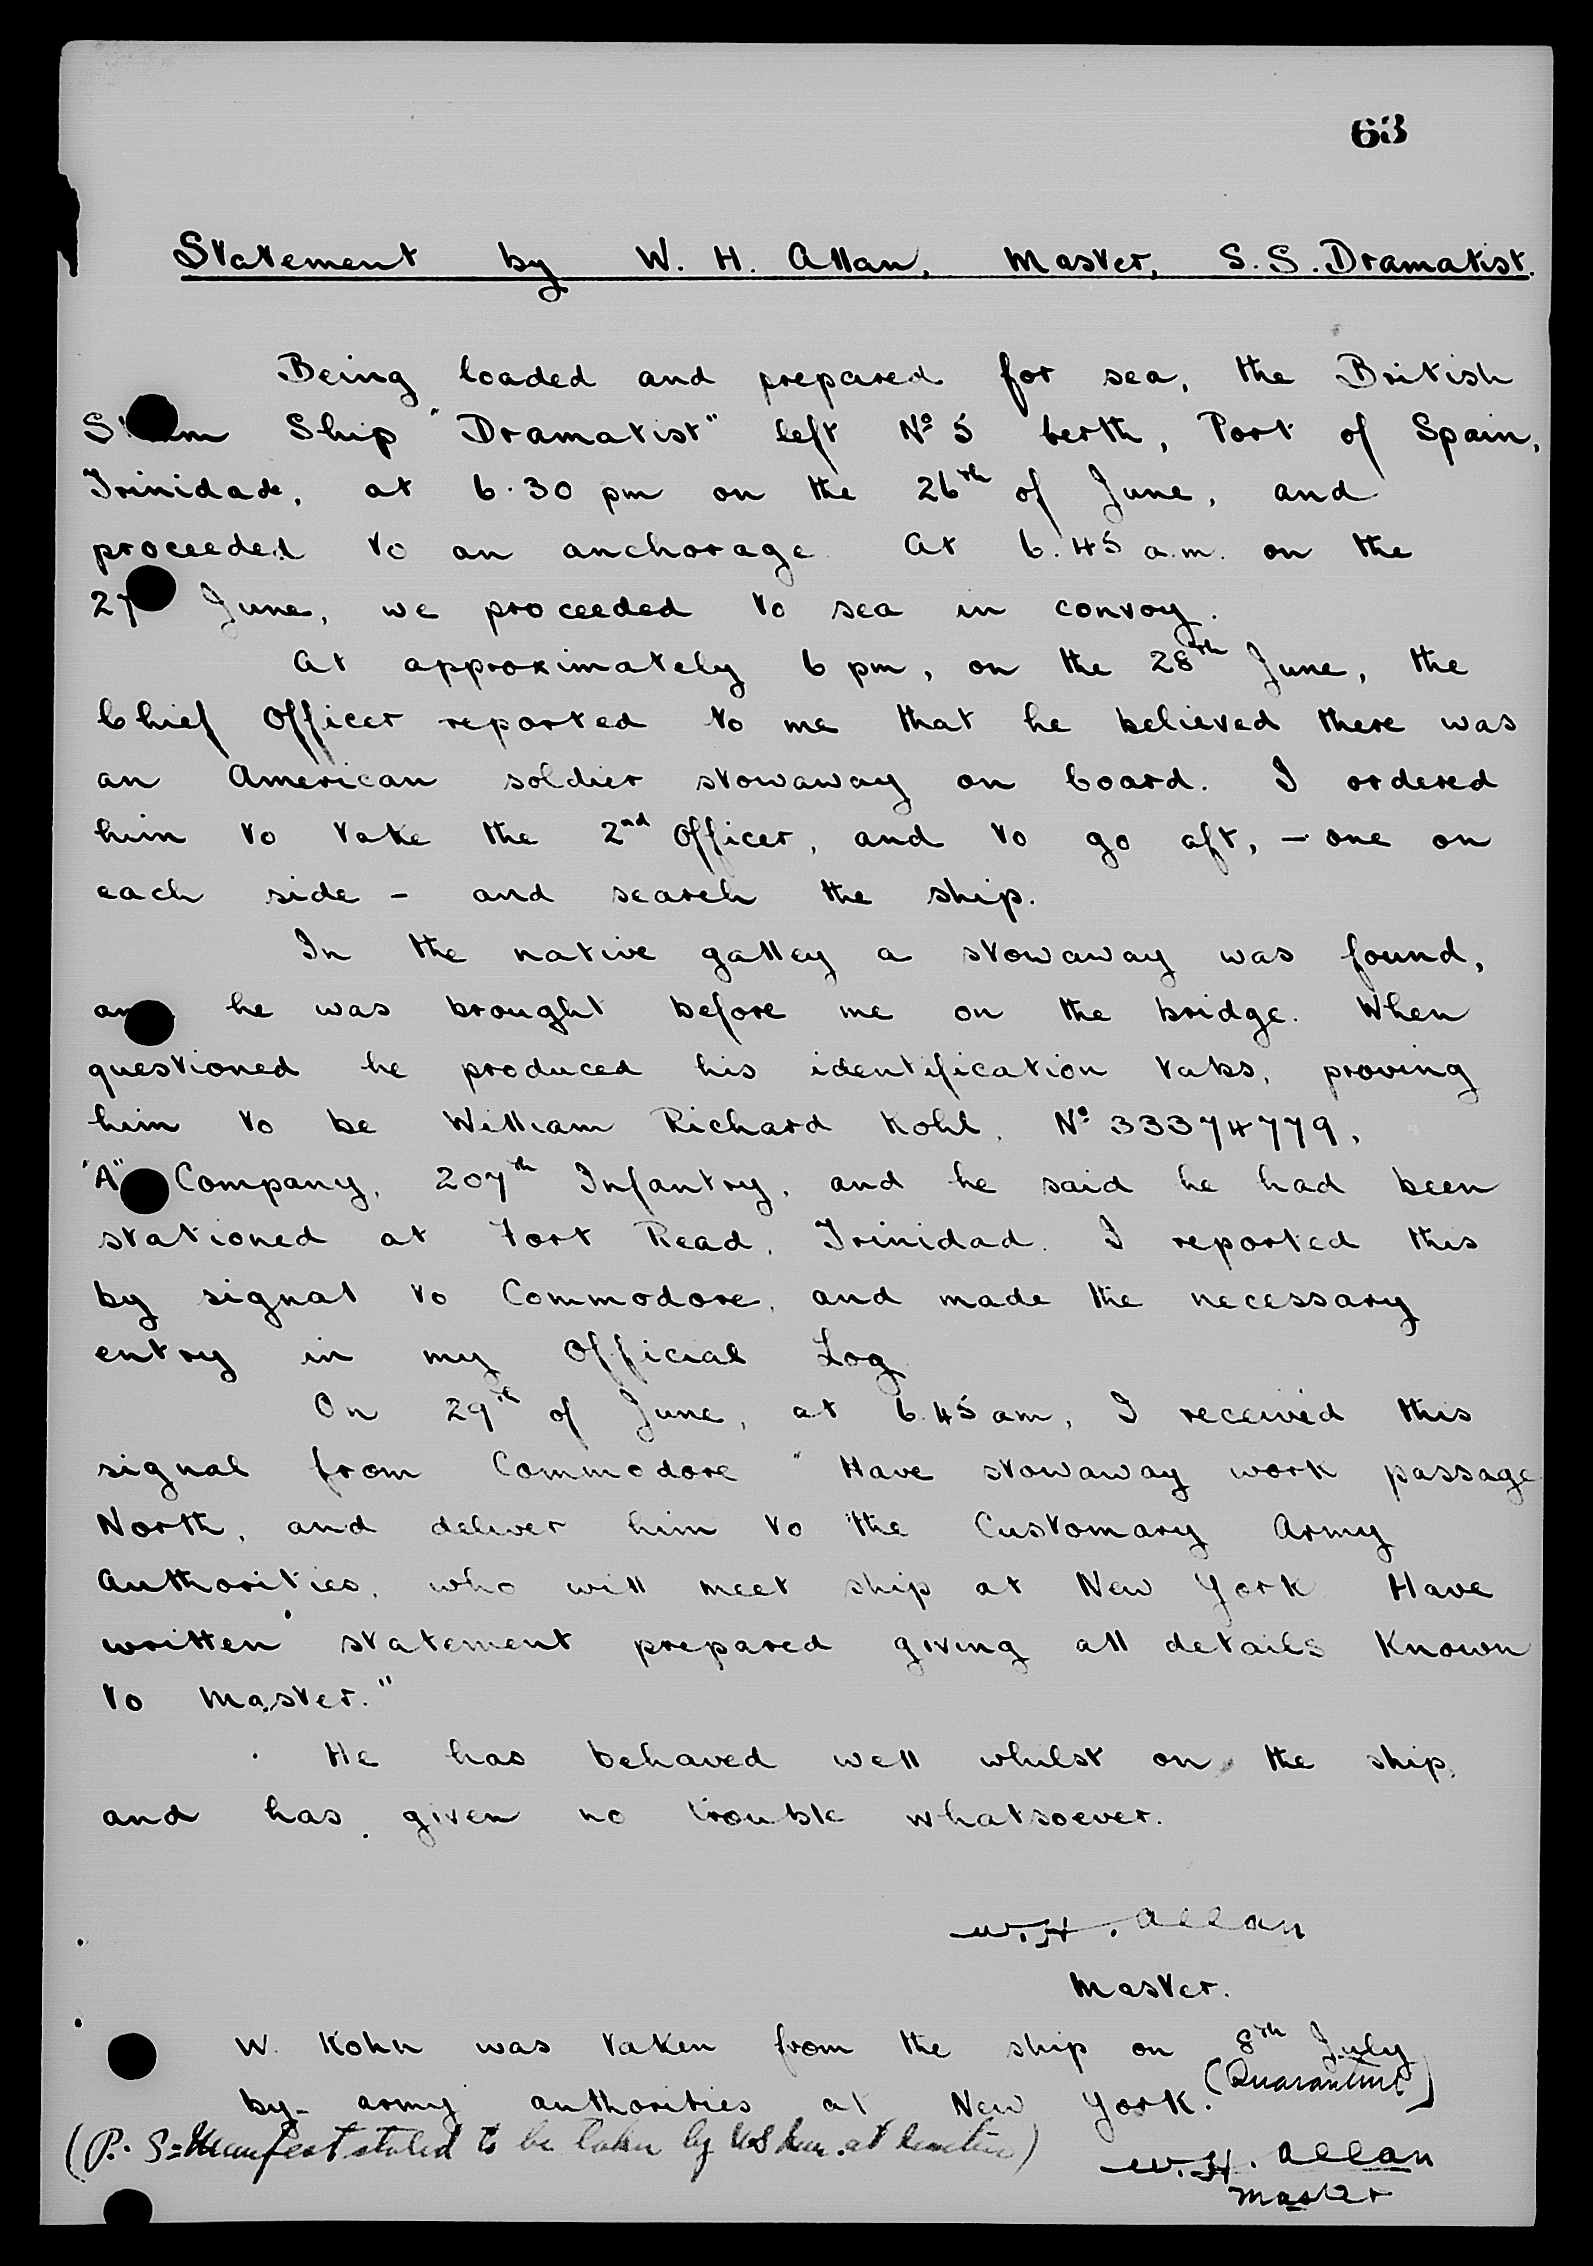 63
Statement by W. H. Allan, Master, S.S. Dramatist.
Being loaded and prepared for sea, the British
Ship "Dramatist" left Nº 5 berth, Port of Spain,
Trinidade, at 6.30 pm on the 26th of June, and
proceeded to an anchorage. At 6.45 a.m. on the
27 June, we proceeded to sea in convoy.
At approximately 6 pm, on the 28th June, the
Chief Officer reported to me that he believed there was
an American soldier stowaway on board. I ordered
him to take the 2nd Officer, and to go aft, - one on
each side - and search the ship.
In the native galley a stowaway was found,
he was brought before me on the bridge. When
questioned he produced his identification tabs, proving
him to be William Richard Kohl, Nº 33374779,
"A" Company, 207th Infantry, and he said he had been
stationed at Fort Read, Trinidad. I reported this
by signal to Commodore, and made the necessary
entry in my Official Log
On 29th of June, at 6.45 am, I received this
signal from Commodore "Have stowaway work passage
North, and deliver him to the Customary Army
Authorities, who will meet ship at New York Have
written statement prepared giving all details known
to Master."
He has behaved well whilst on the ship,
and has given no trouble whatsoever.
W.H. Allan
Master.
W. Kohn was taken from the ship on 8th July
(Quarantine)
by army authorities at New York.
(P.S= Manifest stated to be taken by US at
W.H. Allan
Master